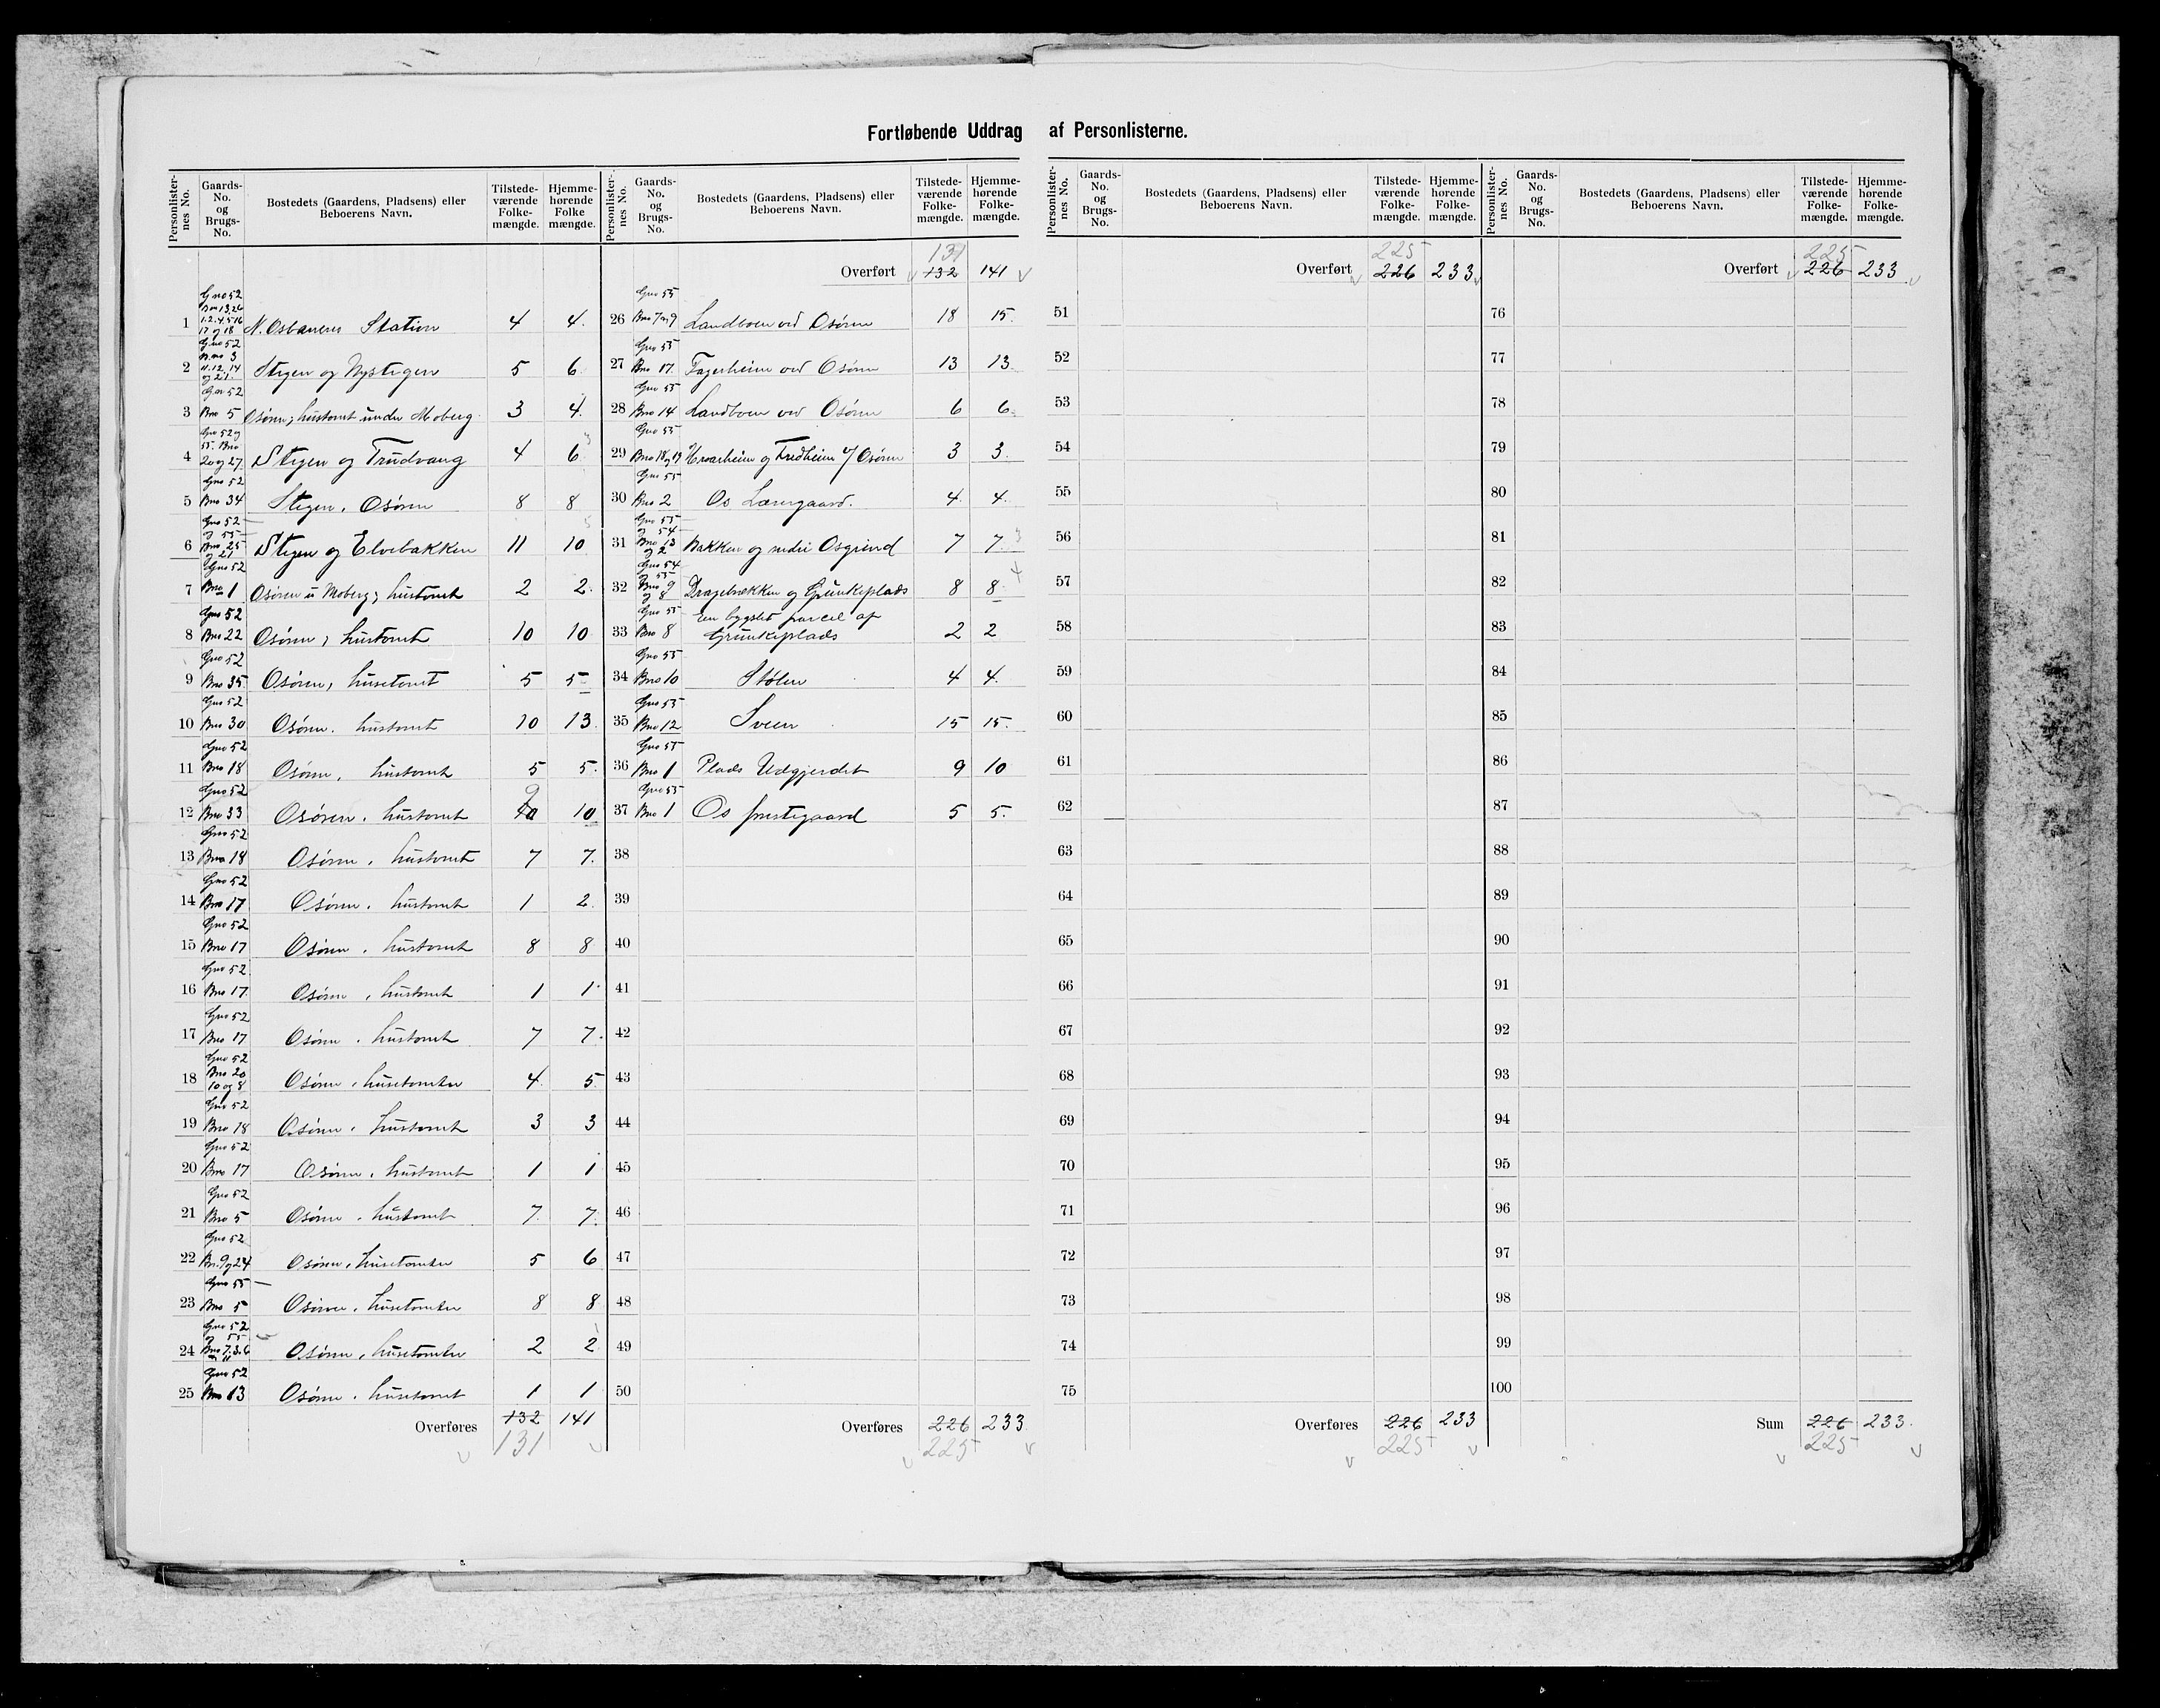 Fortløbende Uddrag af Personlisterne.
Personlisternes No. Gaards-No. og Brugs-No. Bostedets (Gaardens, Pladsens) eller Beboerens Navn. Tilstedeværende Folkemængde. Hjemmehørende Folkemængde.
1 Gno 52 N. Osbanens Station 4 4.
2 Gno 52 Bno 3 11. 12. 14 og 21. Stegen og Nystegen 5 6
3 Gno 52 Bno 5 Osøren, hustomt under Moberg. 3 4.
4 Gno 52 og 55. Bno 20 og 27 Stegen og Trudvang 4 6
5 Gno 52 Bno 34 Stegen, Osøren 8 8
6 Gno 52 og 55 Bno 25 og 21 Stegen og Elvebakken 11 10
7 Gno 52 Bno 1 Osøren u Moberg, hustomt 2 2.
8 Gno 52 Bno 22 Osøren, hustomt 10 10
9 Gno 52 Bno 35 Osøren, husetomt 5 5
10 Gno 52 Bno 30 Osøren, hustomt 10 13.
11 Gno 52 Bno 18 Osøren, hustomt 5 5.
12 Gno 52 Bno 33 Osøren, hustomt 10 9 10
13 Gno 52 Bno 18 Osøren, hustomt 7 7.
14 Gno 52 Bno 17 Osøren, hustomt 1 2.
15 Gno 52 Bno 17 Osøren, hustomt 8 8
16 Gno 52 Bno 17 Osøren, hustomt 1 1
17 Gno 52 Bno 17 Osøren, hustomt 7 7.
18 Gno 52 Bno 20 10 og 8 Osøren, husetomter 4 5
19 Gno 52 Bno 18 Osøren, hustomt 3 3
20 Gno 52 Bno 17 Osøren, hustomt 1 1
21 Gno 52 Bno 5 Osøren, hustomt 7 7.
22 Gno 52 Bn. 9 og 24 Osøren, husetomter 5 6
23 Gno 55 Bno 5 Osøren, husetomter 8 8
24 Gno 52 og 55 Bno 7. 3. 6 Osøren, husetomter 2 2
25 Gno 52 Bno 13 Osøren, husetomt 1 1
Overføres 132 141
131
Overført 131 132 141
26 Gno 55 Bno 7 og 9 Landboen ved Osøren 18 15.
27 Gno 55 Bno 17. Fagerheim ved Osøren 13 13.
28 Gno 55 Bno 14 Landboen ved Osøren 6 6.
29 Gno 55 Bno 18 og 19 Hroarheim og Fredheim v/ Osøren 3 3.
30 Gno 55 Bno 2 Os Lænsgaard. 4 4.
31 Gno 55 og 54 Bno 13 og 2 Bakken og nedre Osgrind 7 7.
32 Gno 54 og 55 Bno 9 og 8 Dragebækken og Grunkeplads 8 8
33 Gno 55 Bno 8 En bygslet parcel af Grunkeplads 2 2
34 Gno 55 Bno 10 Stølen 4 4.
35 Gno 55 Bno 12 Sveen 15 15.
36 Gno 55 Bno 1 Plads Udgjerdet 9 10
37 Gno 55 Bno 1 Os prestegaard 5 5.
38
39
40
41
42
43
44
45
46
47
48
49
50
Overføres 226 233
225
Personlisternes No. Gaards-No. og Brugs-No. Bostedets (Gaardens, Pladsens) eller Beboerens Navn. Tilstedeværende Folkemængde. Hjemmehørende Folkemængde.
Overført 225 226 233
51
52
53
54
55
56
57
58
59
60
61
62
63
64
65
66
67
68
69
70
71
72
73
74
75
Overføres 226 233
225
Overført 225 226 233
76
77
78
79
80
81
82
83
84
85
86
87
88
89
90
91
92
93
94
95
96
97
98
99
100
Sum 226 233.
225